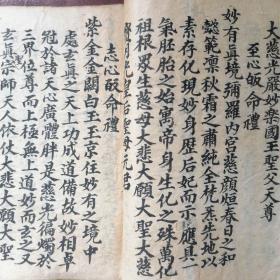 光嚴妙樂國王聖父大天尊
至心皈命禮
妙有真境彌羅內宮慈顏烜春日之和
懿範凜秋霜之肅純全梵炁先地以
素存化現妙身歷后妃而示應具一
氣胚胎之始萬帝身生化之殊萬化
祖根眾生慈母大悲大願大聖大慈
月光皇后聖母元君
志心皈命禮
紫金金闕白玉玉京住妙有之境中
處玄真之天上功成道備故妙相卓
冠於諸天心廣體胖是慈光徧燭於
三界位尊而上極無上道妙而玄之又
玄真宗師天人依仗大悲大願大聖